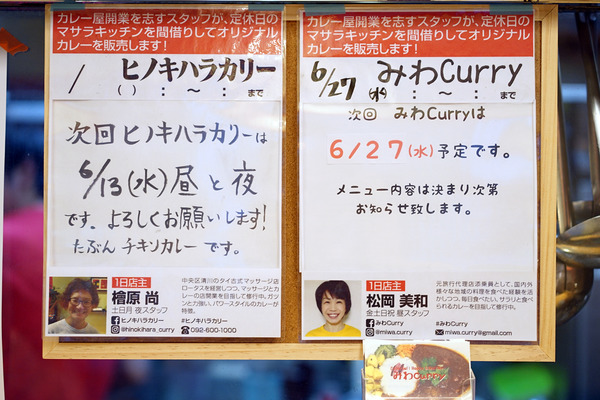 カレー屋開業を志すスタッフが、定休日の
マサラキッチンを間借りしてオリジナル
カレーを販売します!
/ ヒノキハラカリー
( ) : 〜 : まで
次回ヒノキハラカリーは
6/13(水)昼と夜
です。よろしくお願いします!
たぶんチキンカレーです。
1日店主
檜原 尚
土日月 夜スタッフ
ヒノキハラカリー
@hinokihara_curry
中央区清川のタイ古式マッサージ店
ロータスを経営しつつ、マッサージとカ
レーの店開業を目指して修行中。ガツ
ンと力強い、パワースタイルのカレーが
特徴。
#ヒノキハラカリー
092-600-1000
カレー屋開業を志すスタッフが、定休日の
マサラキッチンを間借りしてオリジナル
カレーを販売します!
6/27 みわCurry
(水) : 〜 : まで
次回 みわCurryは
6/27(水)予定です。
メニュー内容は決まり次第
お知らせ致します。
1日店主
松岡 美和
金土日祝 昼スタッフ
みわCurry
@miwa.curry
元旅行代理店添乗員として、国内外
様々な地域の料理を食べた経験を活
かしつつ、毎日食べたい、サラリと食べ
られるカレーを目指して修行中。
#みわCurry
miwa.curry@gmail.com
みわCurry